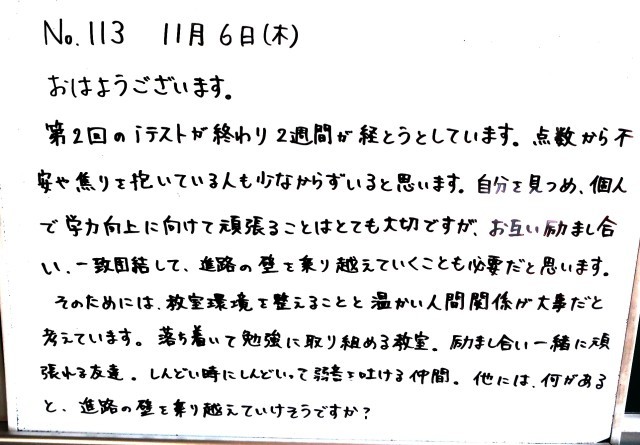 No.113 11月6日(木)
おはようございます。
第2回のiテストが終わり2週間が経とうとしています。点数から不
安や焦りを抱いている人も少なからずいると思います。自分を見つめ、個人
で学力向上に向けて頑張ることはとても大切ですが、お互い励まし合
い、一致団結して、進路の壁を乗り越えていくことも必要だと思います。
そのためには、教室環境を整えることと温かい人間関係が大事だと
考えています。落ち着いて勉強に取り組める教室。励まし合い一緒に頑
張れる友達。しんどい時にしんどいって弱音を吐ける仲間。他には、何がある
と、進路の壁を乗り越えていけそうですか?